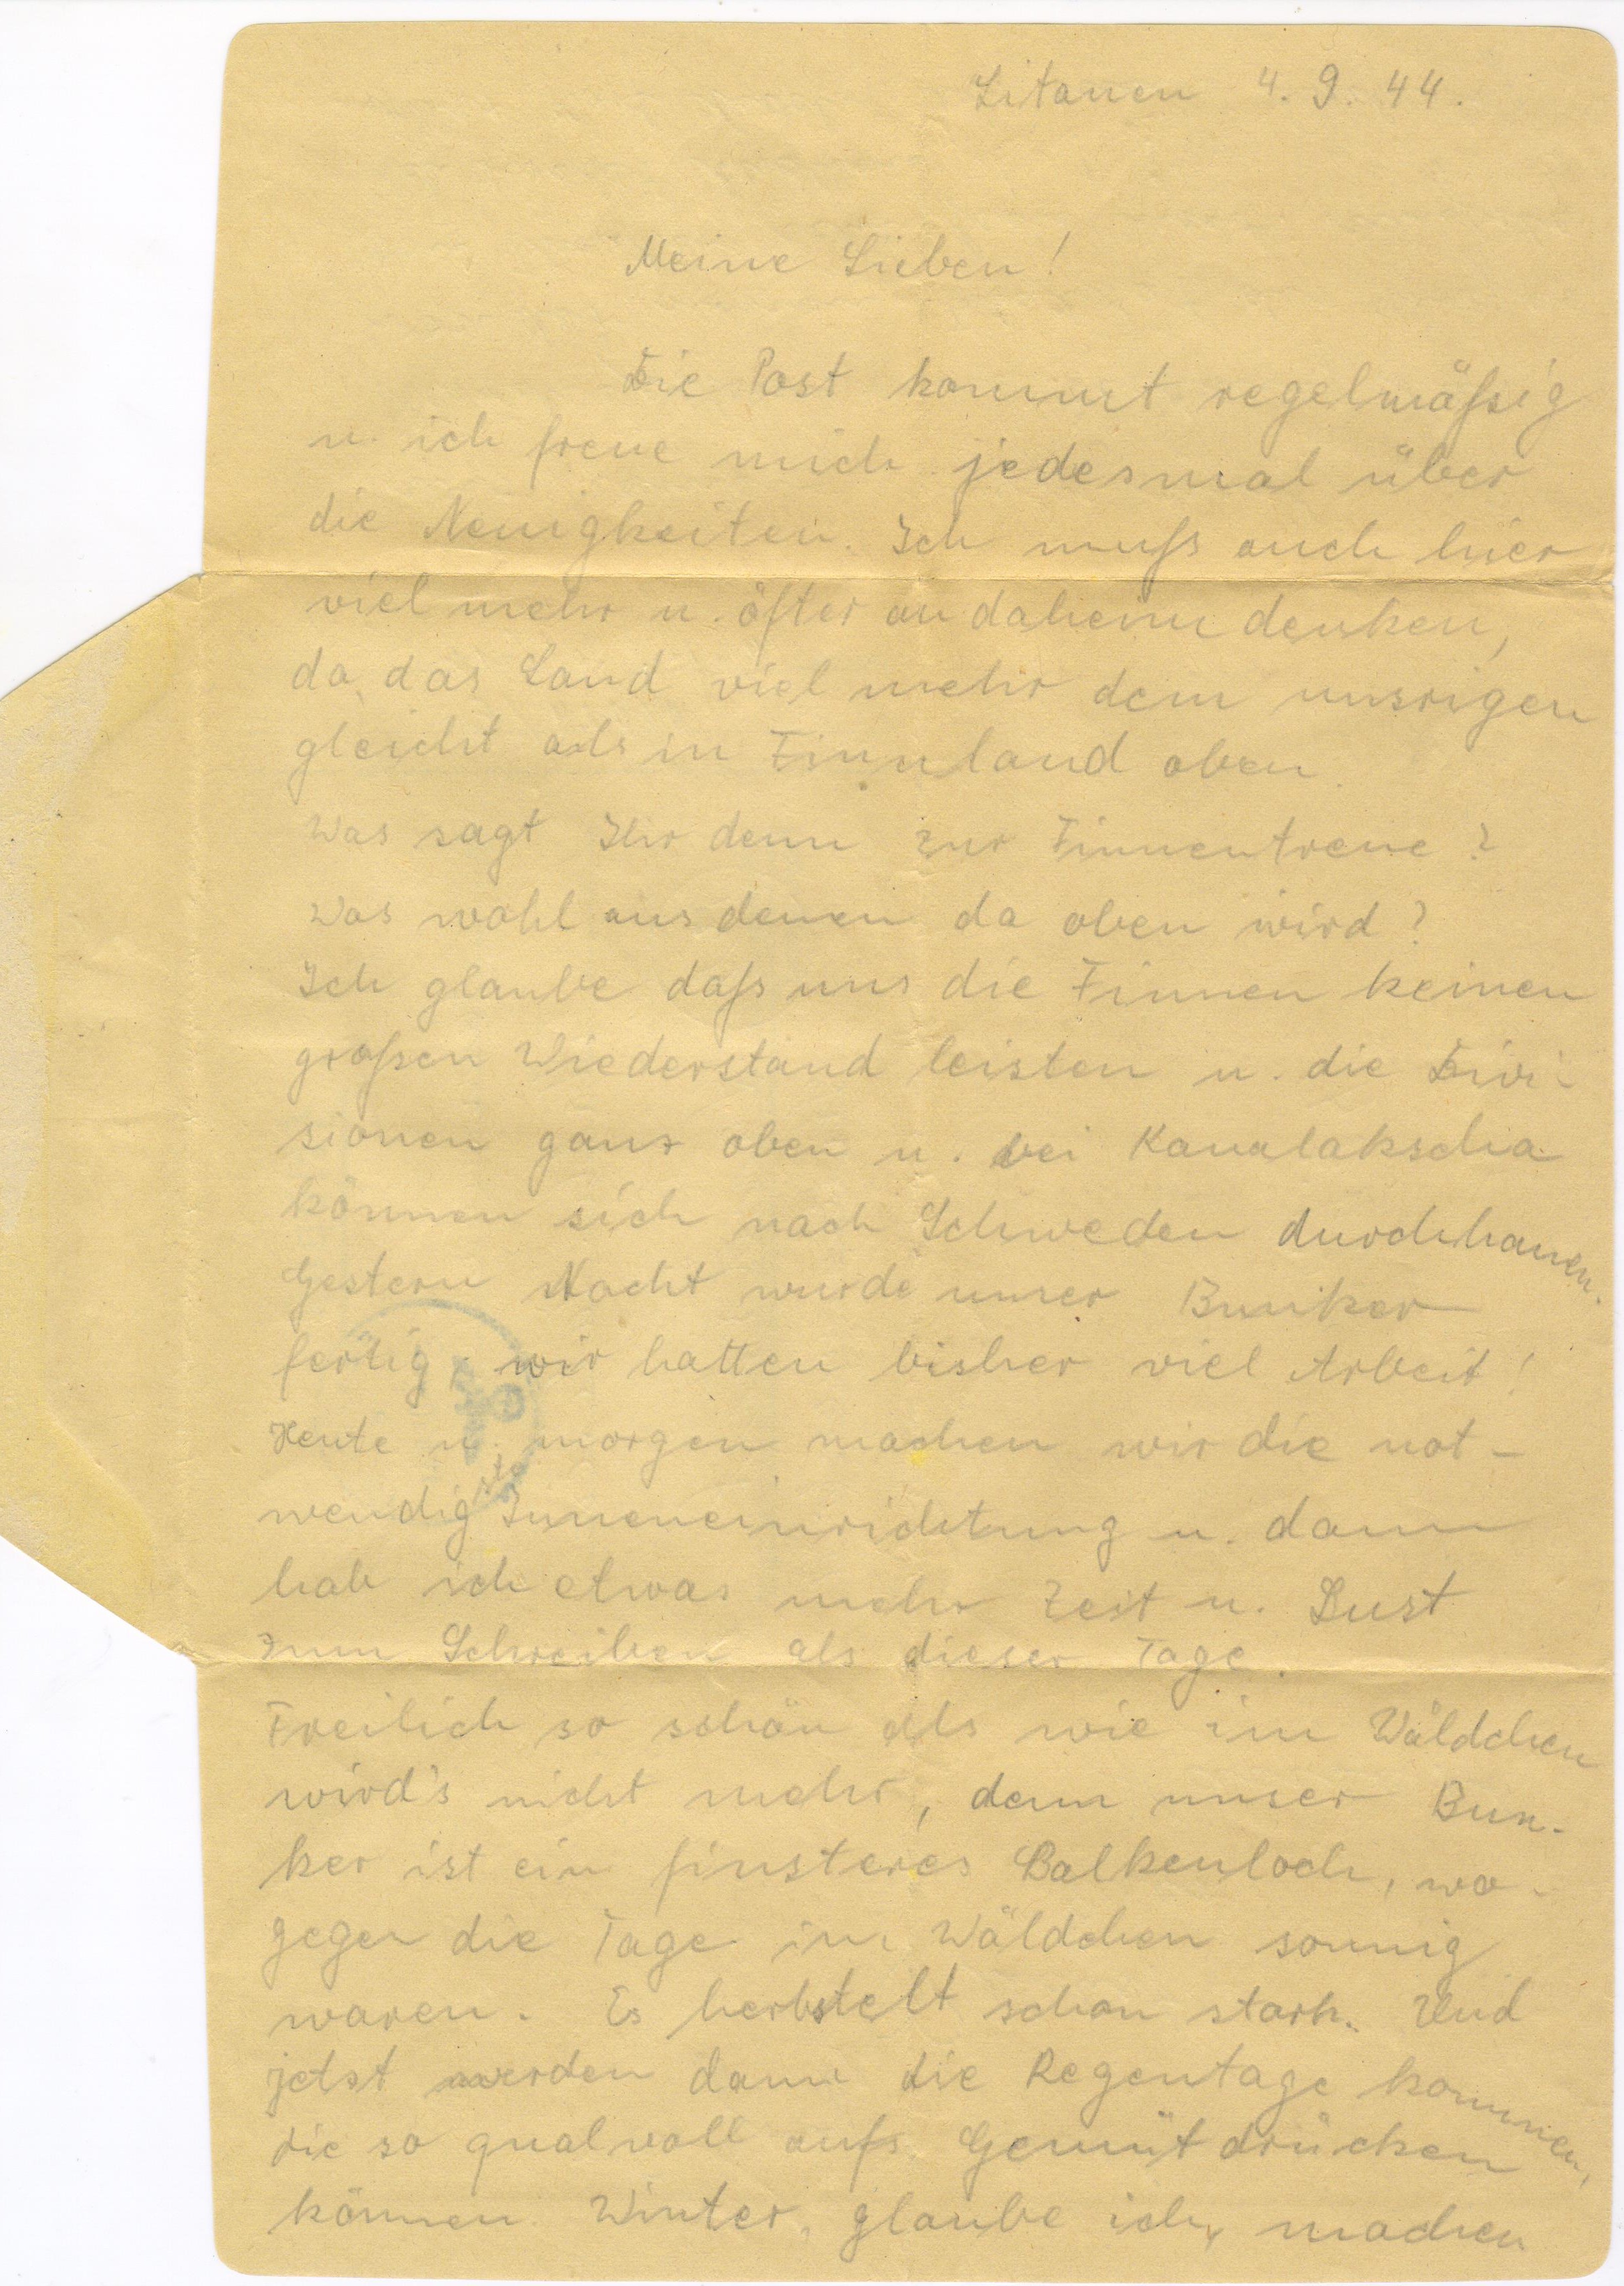 Litauen 4. 9. 44.
Meine Lieben!
Die Post kommt regelmäßig
u. ich freue mich jedesmal über
die Neuigkeiten. Ich muß auch hier
viel mehr u. öfter an daheim denken,
da das Land viel mehr dem unsrigen
gleicht als in Finnland oben.
Was sagt Ihr denn zur Finnentreue?
Was wohl aus denen da oben wird?
Ich glaube daß uns die Finnen keinen
großen Wiederstand leisten u. die Divi-
sionen ganz oben u. bei Kanalakscha
können sich nach Schweden durchhauen.
Gestern Nacht wurde unser Bunker
fertig, wir hatten bisher viel Arbeit!
Heute u. morgen machen wir die not-
wendigste Inneneinrichtung u. dann
hab ich etwas mehr Zeit u. Lust
zum Schreiben als dieser Tage.
Freilich so schön als wie im Wäldchen
wird's nicht mehr, denn unser Bun-
ker ist ein finsteres Balkenloch, wo-
gegen die Tage im Wäldchen sonnig
waren. Es herbstelt schon stark. Und
jetzt werden dann die Regentage kommen,
die so qualvoll aufs Gemüt drücken
können. Winter, glaube ich, machen